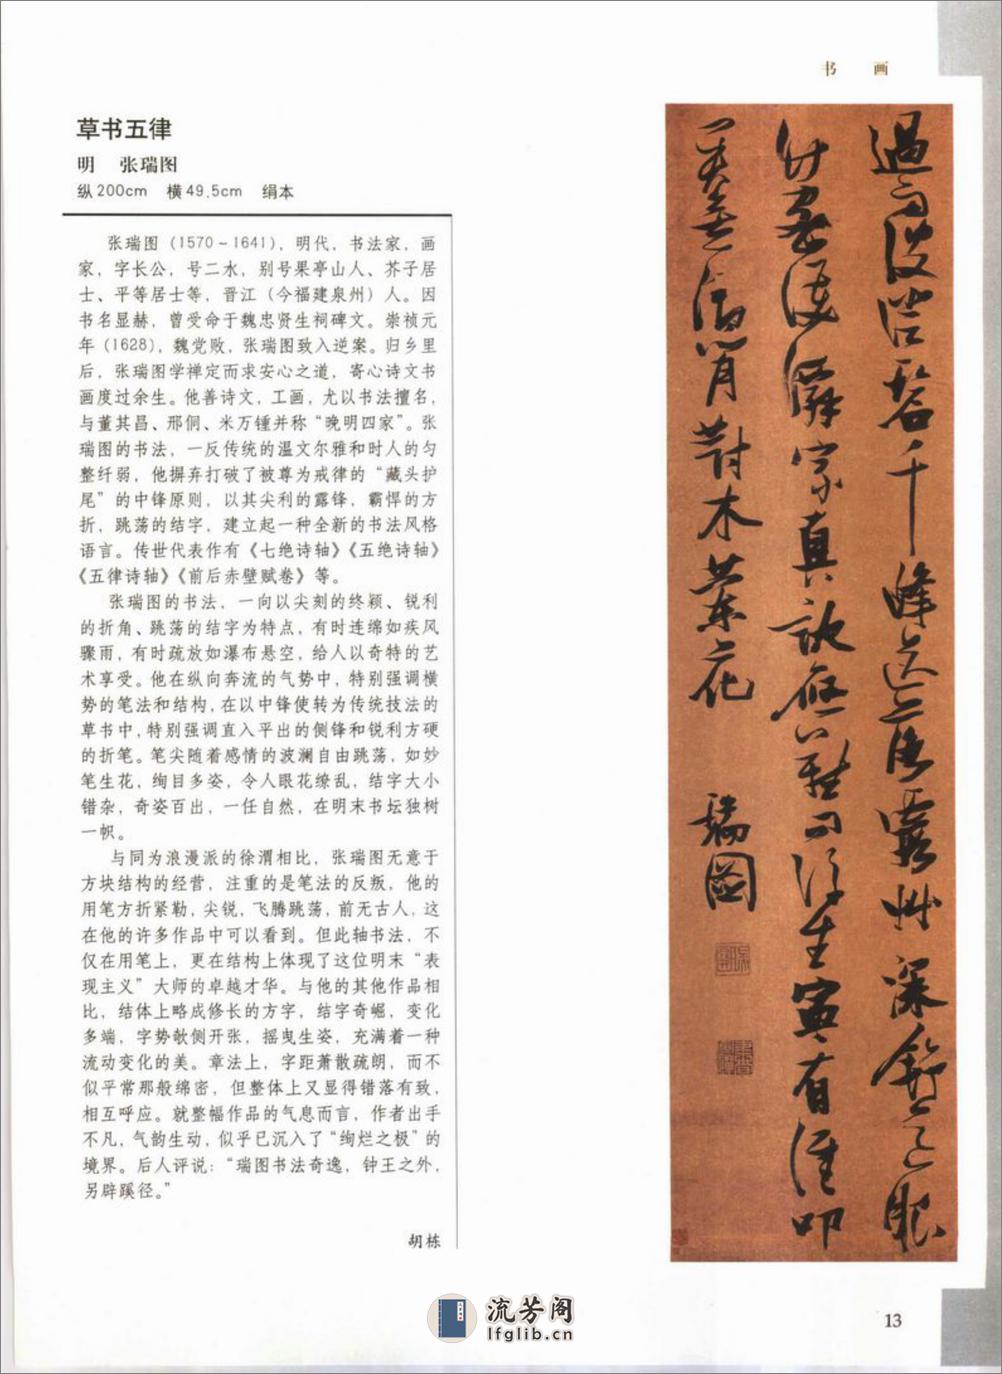 书 画
草书五律
明 张瑞图
纵200cm 横49.5cm 绢本
张瑞图（1570～1641），明代，书法家，画
家，字长公，号二水，别号果亭山人、芥子居
士、平等居士等，晋江（今福建泉州）人。因
书名显赫，曾受命于魏忠贤生祠碑文。崇祯元
年（1628），魏党败，张瑞图致入逆案。归乡里
后，张瑞图学禅定而求安心之道，寄心诗文书
画度过余生。他善诗文，工画，尤以书法擅名，
与董其昌、邢侗、米万锺并称“晚明四家”。张
瑞图的书法，一反传统的温文尔雅和时人的匀
整纤弱，他摒弃打破了被尊为戒律的“藏头护
尾”的中锋原则，以其尖利的露锋，霸悍的方
折，跳荡的结字，建立起一种全新的书法风格
语言。传世代表作有《七绝诗轴》《五绝诗轴》
《五律诗轴》《前后赤壁赋卷》等。
张瑞图的书法，一向以尖刻的终颖、锐利
的折角、跳荡的结字为特点，有时连绵如疾风
骤雨，有时疏放如瀑布悬空，给人以奇特的艺
术享受。他在纵向奔流的气势中，特别强调横
势的笔法和结构，在以中锋使转为传统技法的
草书中，特别强调直入平出的侧锋和锐利方硬
的折笔。笔尖随着感情的波澜自由跳荡，如妙
笔生花，绚目多姿，令人眼花缭乱，结字大小
错杂，奇姿百出，一任自然，在明末书坛独树
一帜。
与同为浪漫派的徐渭相比，张瑞图无意于
方块结构的经营，注重的是笔法的反叛，他的
用笔方折紧勒，尖锐，飞腾跳荡，前无古人，这
在他的许多作品中可以看到。但此轴书法，不
仅在用笔上，更在结构上体现了这位明末“表
现主义”大师的卓越才华。与他的其他作品相
比，结体上略成修长的方字，结字奇崛，变化
多端，字势欹侧开张，摇曳生姿，充满着一种
流动变化的美。章法上，字距萧散疏朗，而不
似平常那般绵密，但整体上又显得错落有致，
相互呼应。就整幅作品的气息而言，作者出手
不凡，气韵生动，似乎已沉入了“绚烂之极”的
境界。后人评说：“瑞图书法奇逸，钟王之外，
另辟蹊径。”
胡栋
過雨碧千峰送落霞艸深
竹密家真訣應難問浮生有
宵對木蘭花
瑞圖
流芳阁
lfglib.cn
13